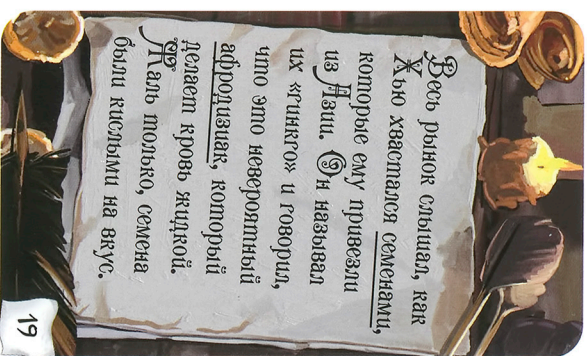 Весь рынок слышал, как
Хью хвастался семенами,
которые ему привезли
из Азии. Он называл
их «гинкго» и говорил,
что это невероятный
афродизиак, который
делает кровь жидкой.
Жаль только, семена
были кислыми на вкус.
19